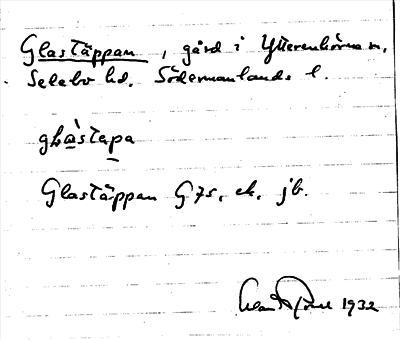 Glastäppan, gård i Ytterenhörna sn,
Selebo hd. Södermanlands l.
glàstapa
Glastäppan G75, ek, jb.
1932